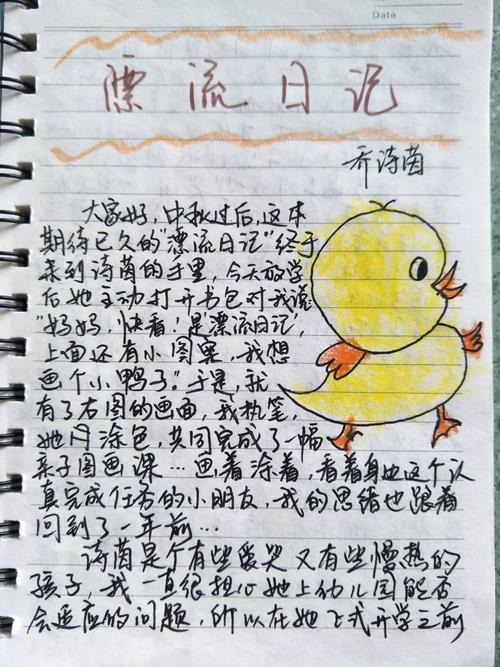 Data
漂流日记
乔诗茵
大家好，中秋过后，这本
期待已久的“漂流日记”终于
来到诗茵的手里，今天放学
后她主动打开书包对我说
“妈妈，快看！是漂流日记，
上面还有小图案，我想
画个小鸭子。”于是，就
有了右图的画面，我执笔，
她 涂色，共同完成了一幅
亲子图画课…画着涂着，看着身边这个认
真完成任务的小朋友，我的思绪也跟着
回到了一年前…
诗茵是个有些爱哭又有些慢热的
孩子，我一直很担心她上幼儿园能否
会适应的问题，所以在她正式开学之前